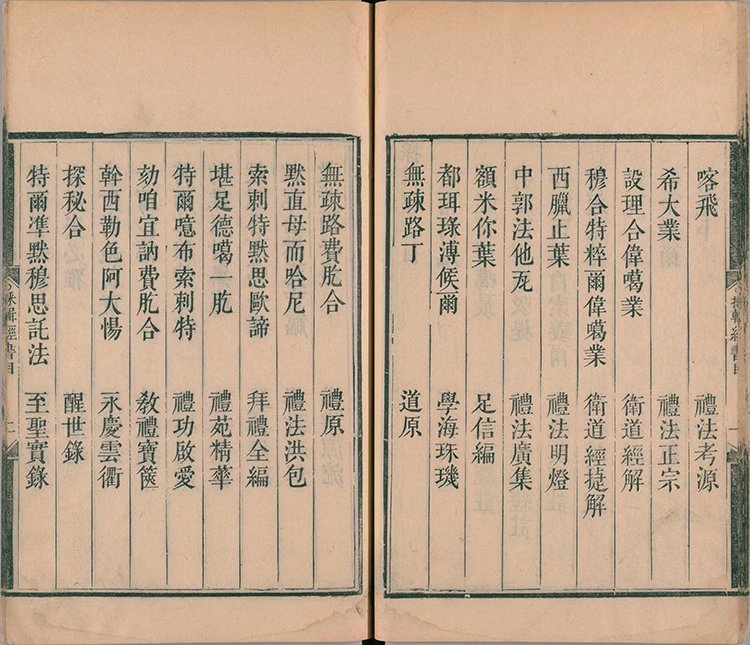 喀飛 禮法考源
希大業 禮法正宗
設理合偉噶業 衛道經解
穆合特粹爾偉噶業 衛道經捷解
西臘止葉 禮法明燈
中郭法他瓦 禮法廣集
額米你葉 足信編
都珥琭溥候爾 學海珠璣
無疎路丁 道原
採輯經書目 一
無疎路費肐合 禮原
默直母而哈尼 禮法洪包
索剌特默思歐諦 拜禮全編
堪足德噶肐 禮苑精華
特爾噫布索剌特 禮功啟愛
劾咱宜訥費肐合 教禮寶篋
幹西勒色阿大惕 永慶雲衢
探秘合 醒世錄
特爾準默穆思託法 至聖實錄
採輯經書目 二